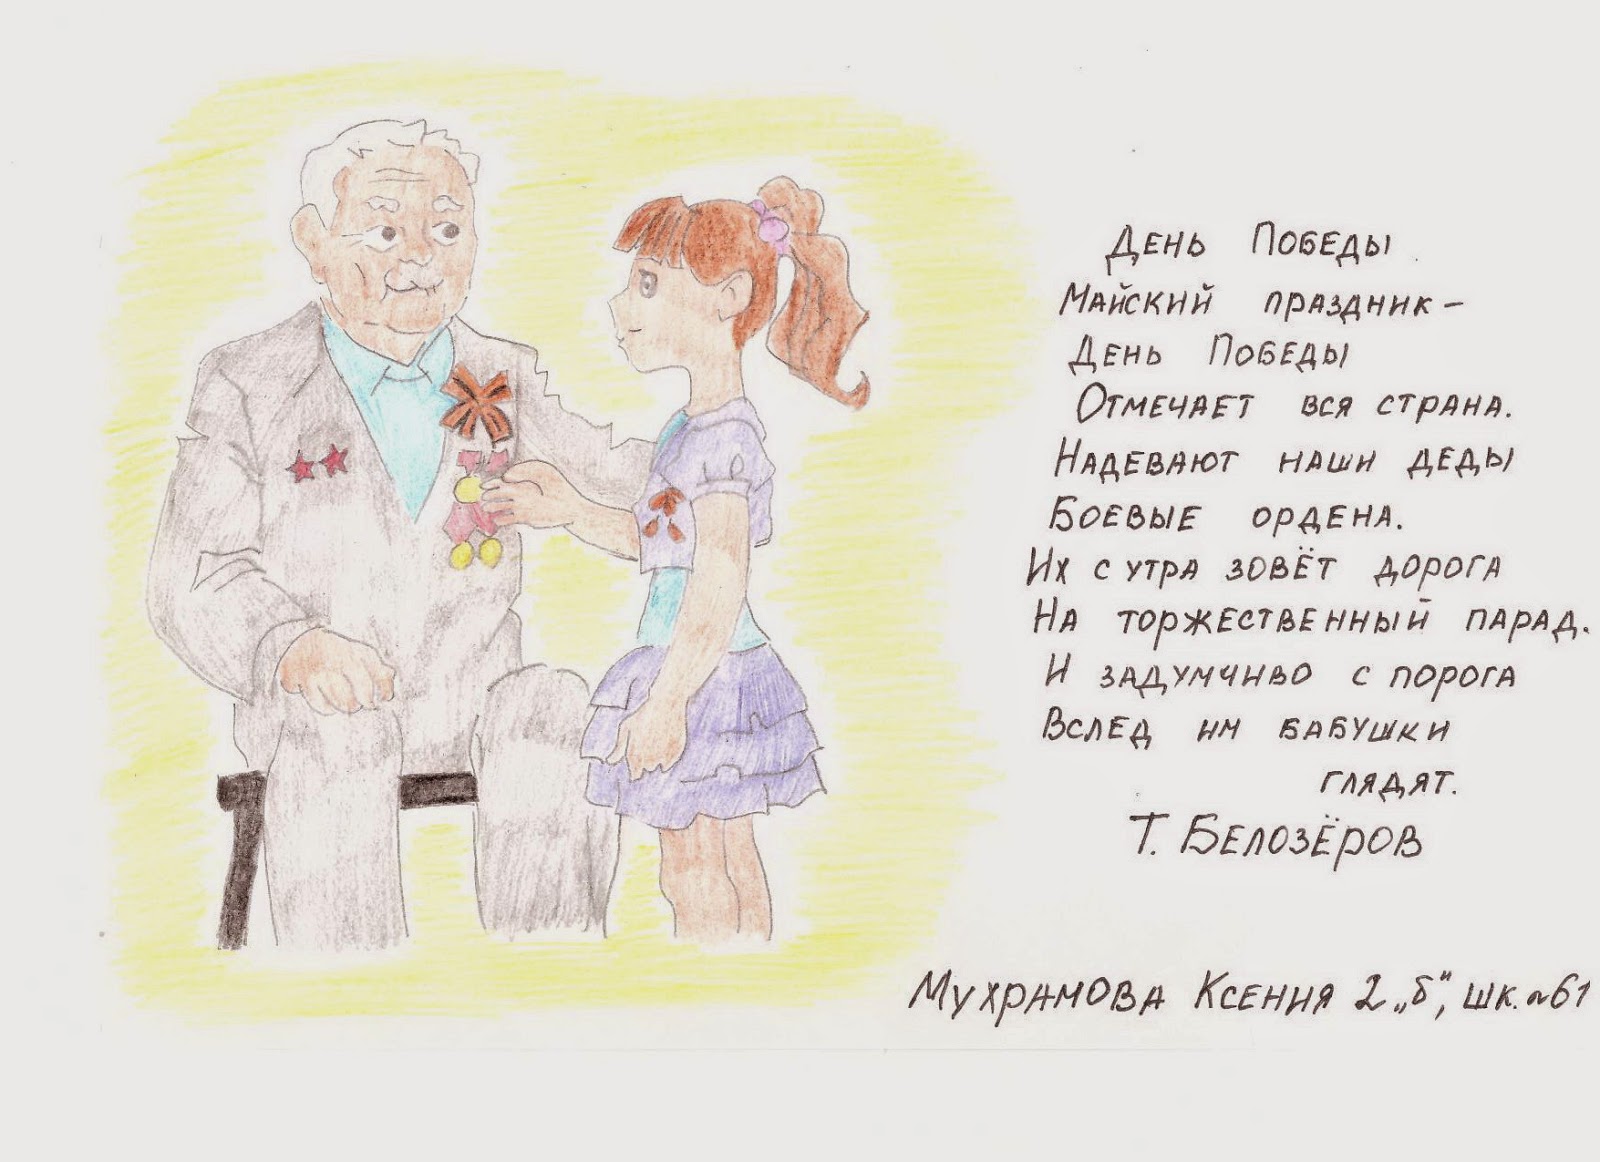 День Победы
Майский праздник –
День Победы
Отмечает вся страна.
Надевают наши деды
Боевые ордена.
Их с утра зовёт дорога
На торжественный парад.
И задумчиво с порога
Вслед им бабушки
глядят.
Т. Белозёров
Мухрамова Ксения 2 „б“, шк. №61